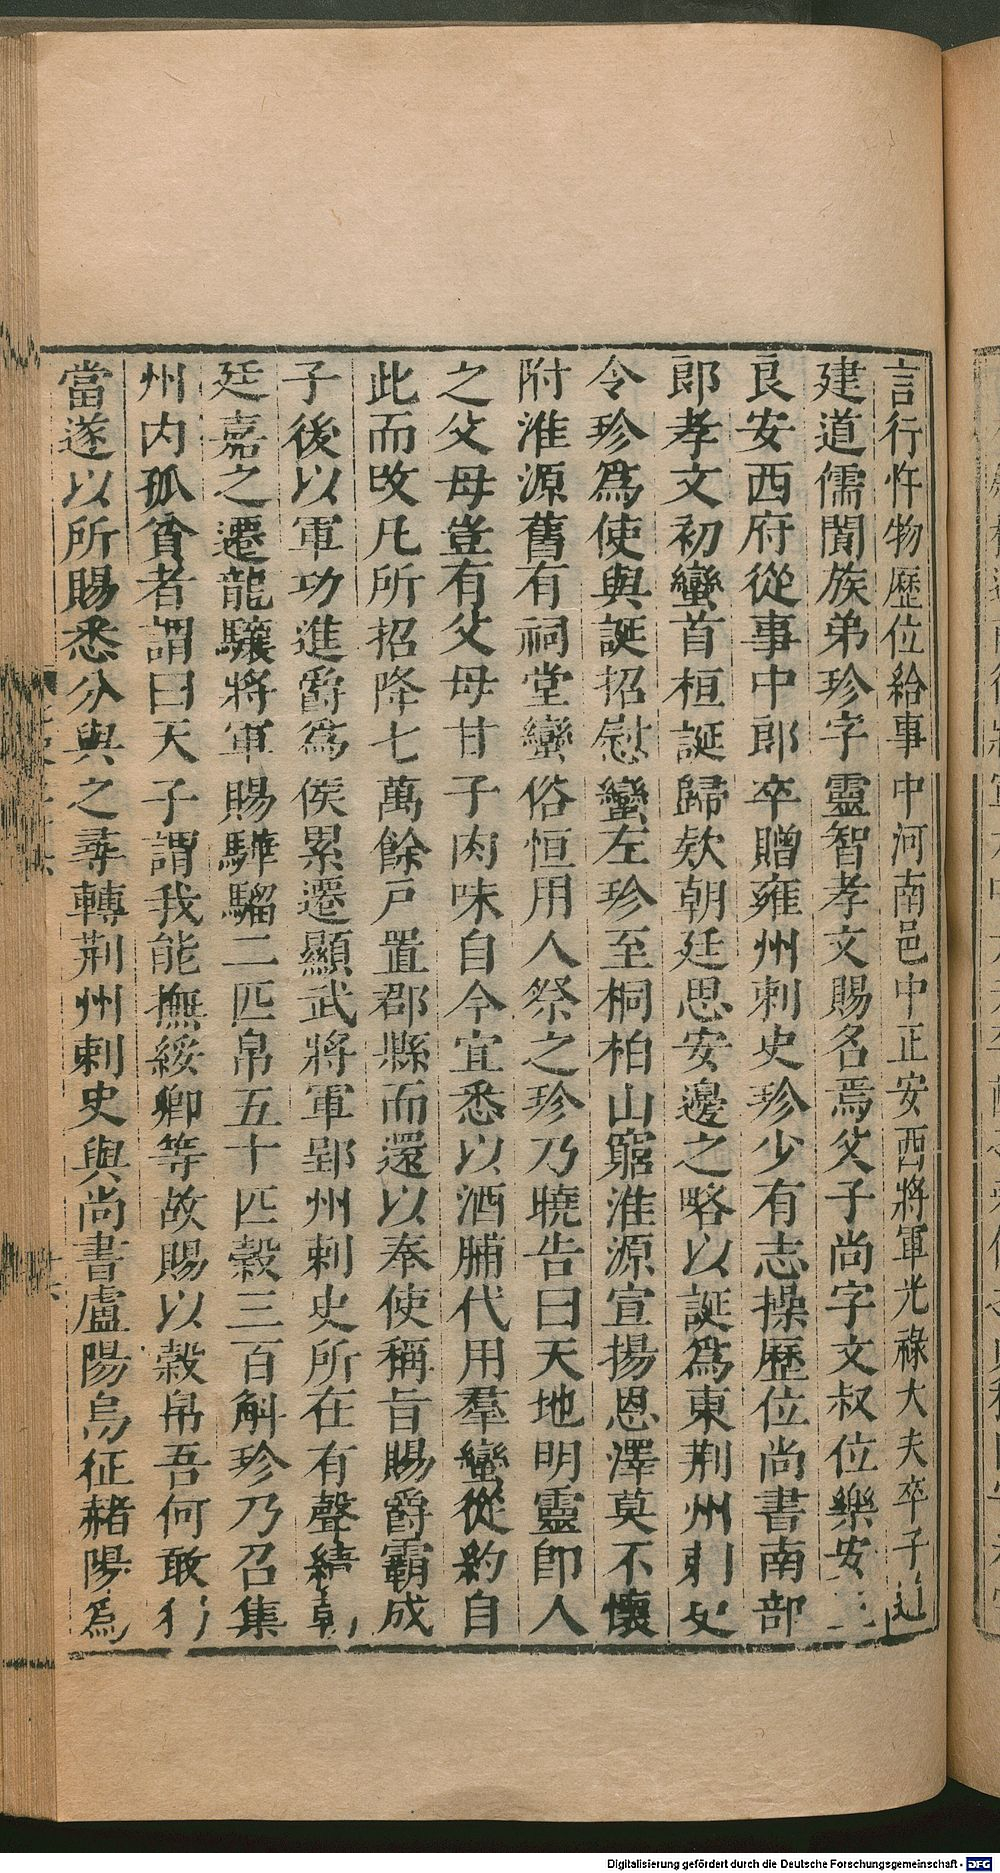 言行忤物歷位給事中河南邑中正安西將軍光祿大夫卒子
建道儒閬族弟珍字靈智孝文賜名焉父子尚字文叔位樂安王
良安西府從事中郎卒贈雍州刺史珍少有志操歷位尚書南部
郎孝文初蠻首桓誕歸欵朝廷思安邊之略以誕爲東荆州刺史
令珍爲使與誕招慰蠻左珍至桐柏山窮淮源宣揚恩澤莫不懷
附淮源舊有祠堂蠻俗恒用人祭之珍乃曉告曰天地明靈卽人
之父母豈有父母甘子肉味自今宜悉以酒脯代用羣蠻從約自
此而改凡所招降七萬餘戶置郡縣而還以奉使稱旨賜爵霸成
子後以軍功進爵爲侯累遷顯武將軍郢州刺史所在有聲績朝
廷嘉之遷龍驤將軍賜驊騮二匹帛五十匹穀三百斛珍乃召集
州内孤貧者謂曰天子謂我能撫綏卿等故賜以穀帛吾何敢
當遂以所賜悉分與之尋轉荆州刺史與尚書盧陽烏征赭陽爲
Digitalisierung gefördert durch die Deutsche Forschungsgemeinschaft - DFG